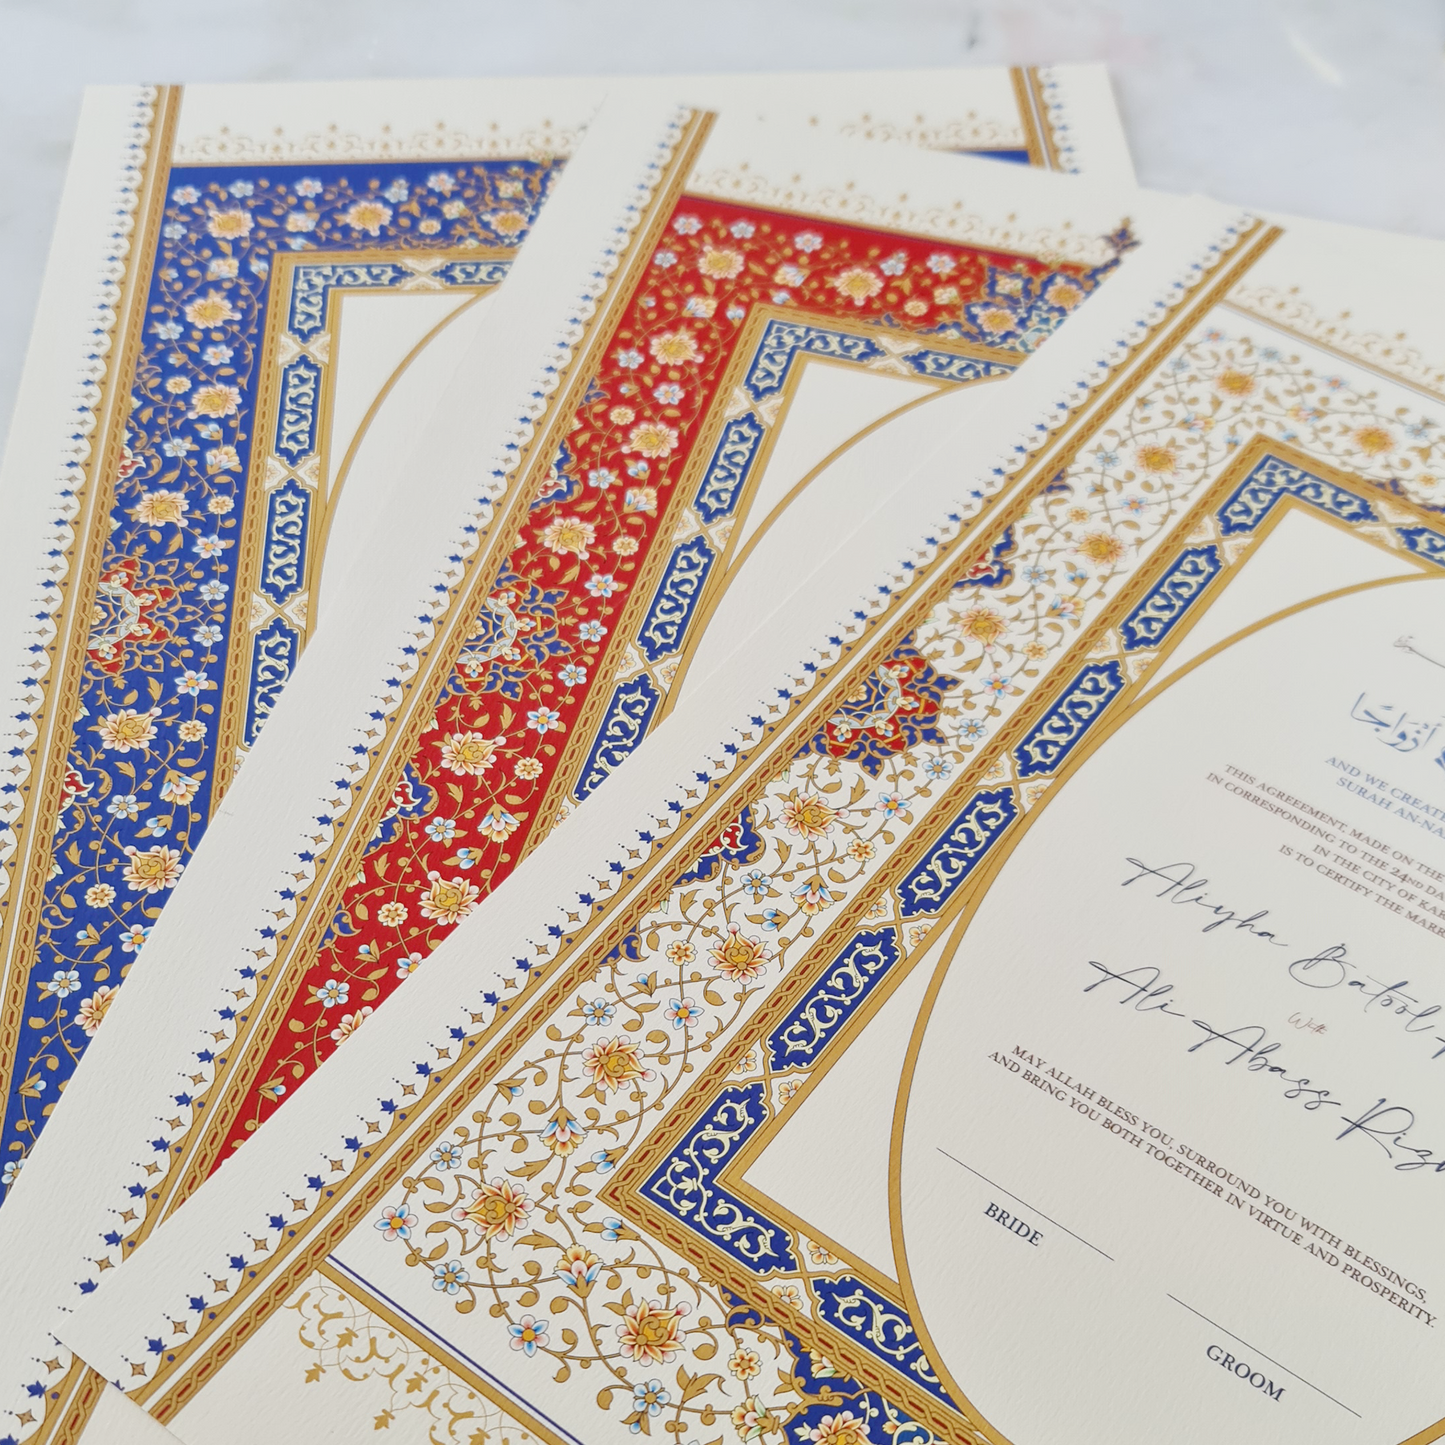 أَزْوَاجًا
AND WE CREATE
SURAH AN-NA
THIS AGREEEMENT, MADE ON THE
IN CORRESPONDING TO THE 24ND DA
IN THE CITY OF
IS TO CERTIFY THE MARR
Aliyha Batol
With
Ali Abass Rizv
MAY ALLAH BLESS YOU, SURROUND YOU WITH BLESSINGS,
AND BRING YOU BOTH TOGETHER IN VIRTUE AND PROSPERITY.
BRIDE
GROOM